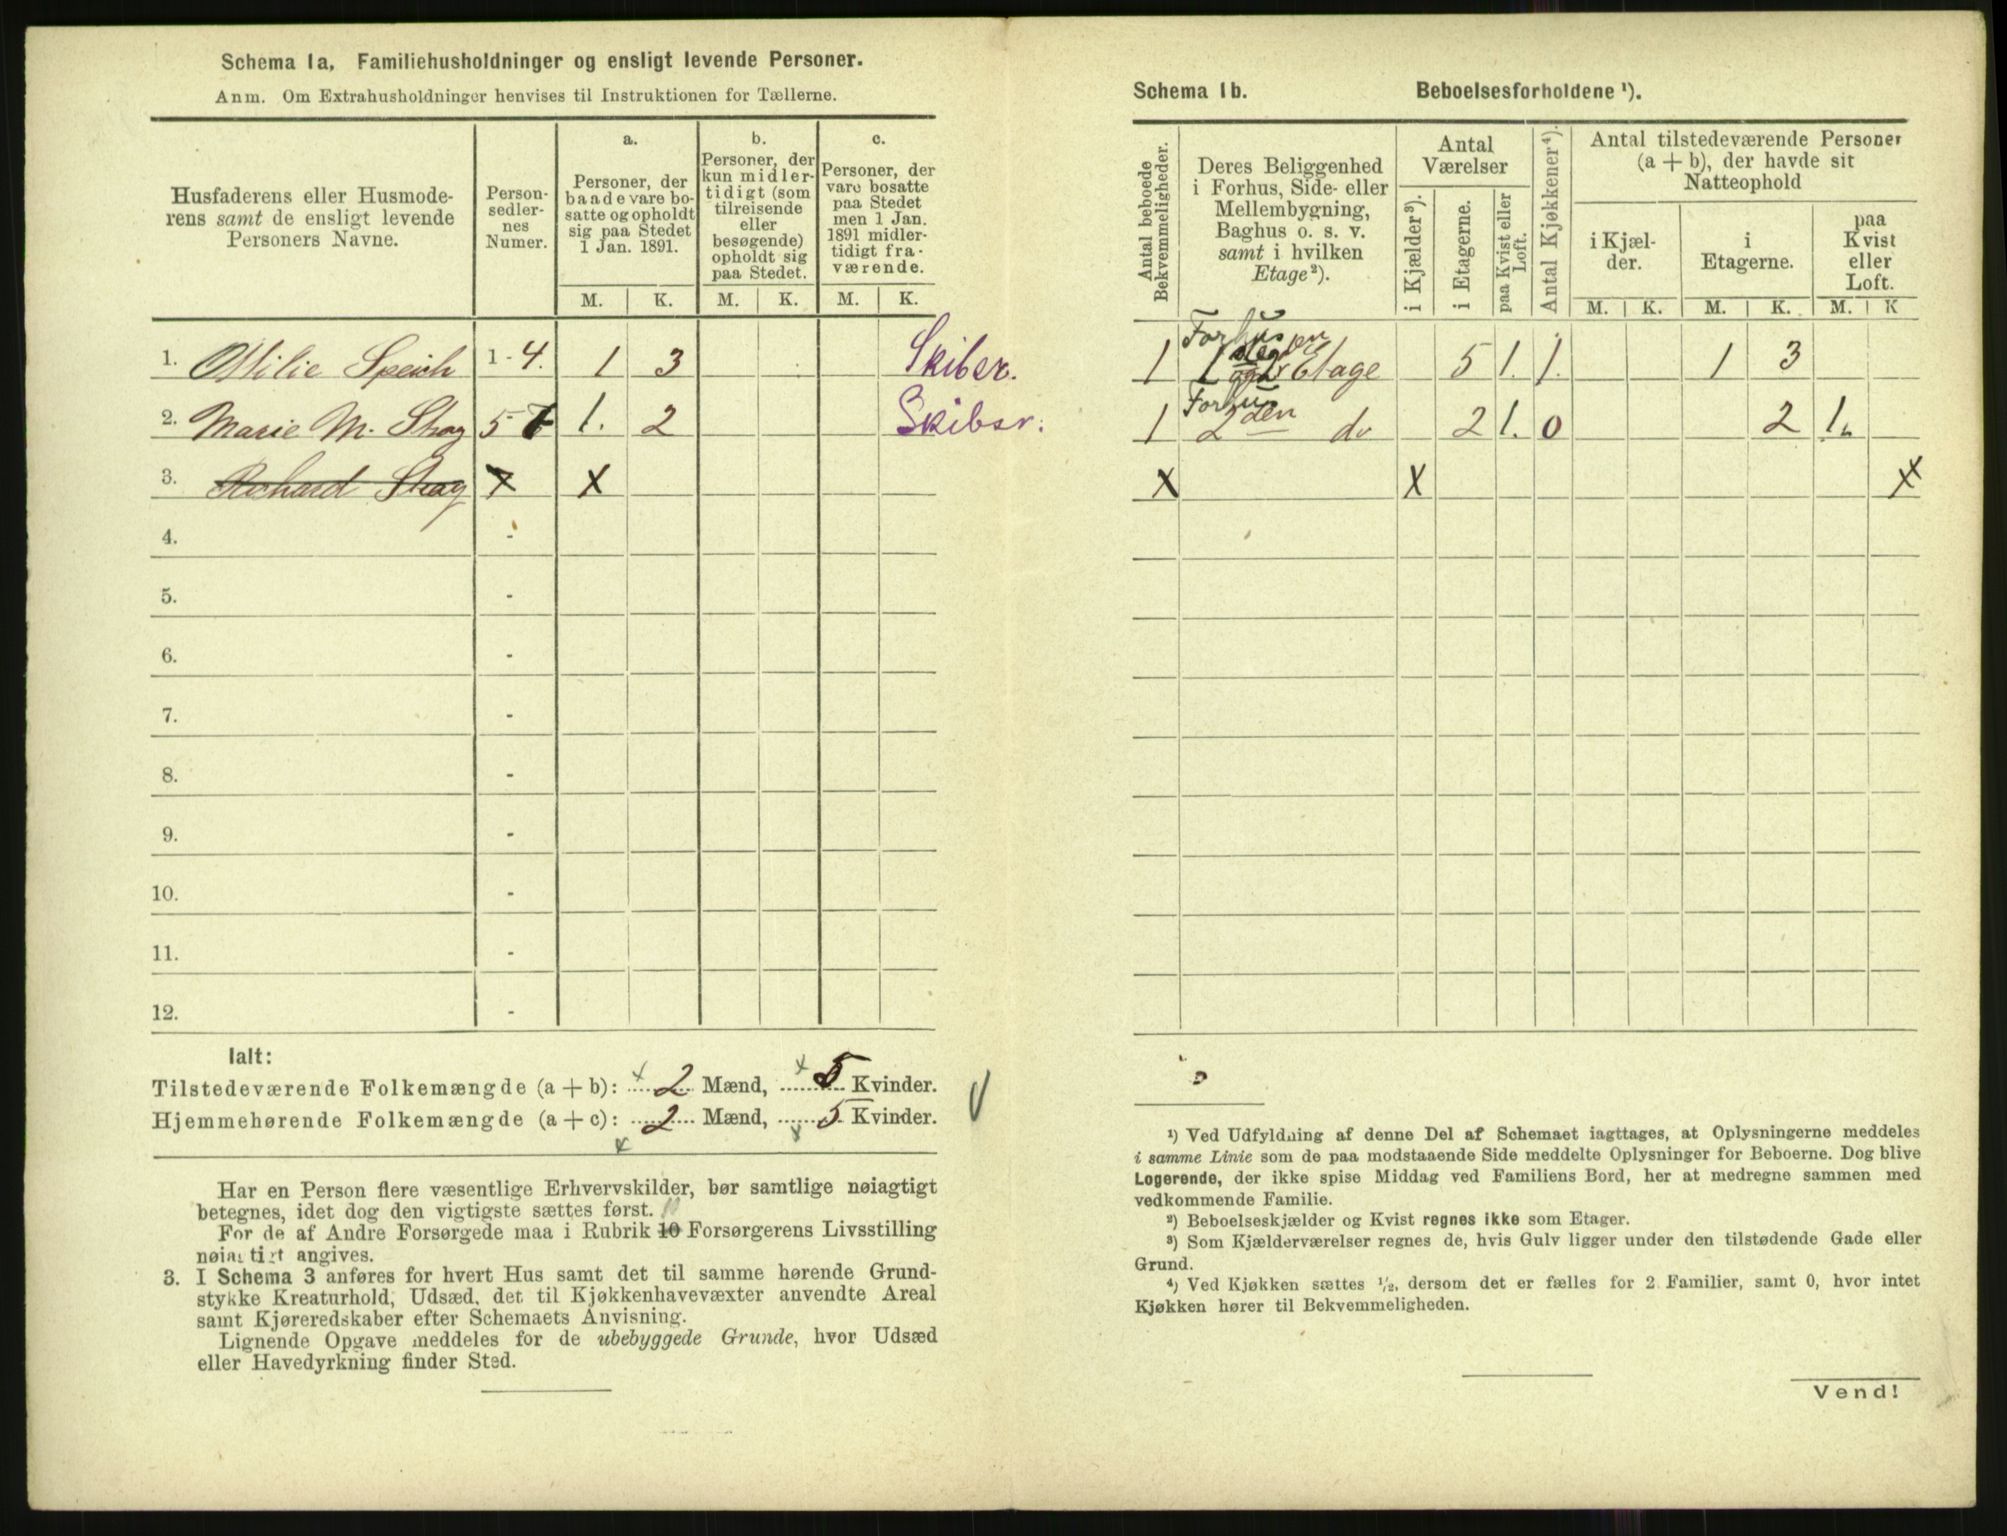 Schema 1a. Familiehusholdninger og ensligt levende Personer.
Anm. Om Extrahusholdninger henvises til Instruktionen for Tællerne.
Husfaderens eller Husmoderens samt de ensligt levende Personers Navne.
Personsedlernes Numer.
a.
Personer, der baade vare bosatte og opholdt sig paa Stedet 1 Jan. 1891.
b.
Personer, der kun midlertidigt (som tilreisende eller besøgende) opholdt sig paa Stedet.
c.
Personer, der vare bosatte paa Stedet men 1 Jan. 1891 midlertidigt fraværende.
M. K. M. K. M. K.
1. Speich 1-4. 1 3 Skiber.
2. Marie M. Skog 5 7 1. 2 Skibsr.
3. Richard Skog x x
4. -
5. -
6. -
7. -
8. -
9. -
10. -
11. -
12. -
Ialt:
Tilstedeværende Folkemængde (a + b): x 2 Mænd, x 5 Kvinder.
Hjemmehørende Folkemængde (a + c): 2 Mænd, 5 Kvinder.
Har en Person flere væsentlige Erhvervskilder, bør samtlige nøiagtigt
betegnes, idet dog den vigtigste sættes først.
For de af Andre Forsørgede maa i Rubrik 10 Forsørgerens Livsstilling
nøiagtigt angives.
3. I Schema 3 anføres for hvert Hus samt det til samme hørende Grund-
stykke Kreaturhold, Udsæd, det til Kjøkkenhavevæxter anvendte Areal
samt Kjøreredskaber efter Schemaets Anvisning.
Lignende Opgave meddeles for de ubebyggede Grunde, hvor Udsæd
eller Havedyrkning finder Sted.
Schema 1b. Beboelsesforholdene ¹).
Antal beboede Bekvemmeligheder.
Deres Beliggenhed i Forhus, Side- eller Mellembygning, Baghus o. s. v. samt i hvilken Etage²).
Antal Værelser
i Kjælder³).
i Etagerne.
paa Kvist eller Loft.
Antal Kjøkkener⁴).
Antal tilstedeværende Personer (a + b), der havde sit Natteophold
i Kjælder.
i Etagerne.
paa Kvist eller Loft.
M. K. M. K. M. K
Forhus
1 1 Etage 5 1. 1. 1 3
Forhus
1 2den do 2 1. 0 2 1.
x x x
¹) Ved Udfyldning af denne Del af Schemaet iagttages, at Oplysningerne meddeles
i samme Linie som de paa modstaaende Side meddelte Oplysninger for Beboerne. Dog blive
Logerende, der ikke spise Middag ved Familiens Bord, her at medregne sammen med
vedkommende Familie.
²) Beboelseskjælder og Kvist regnes ikke som Etager.
³) Som Kjælderværelser regnes de, hvis Gulv ligger under den tilstødende Gade eller
Grund.
⁴) Ved Kjøkken sættes ¹/₂, dersom det er fælles for 2 Familier, samt 0, hvor intet
Kjøkken hører til Bekvemmeligheden.
Vend!